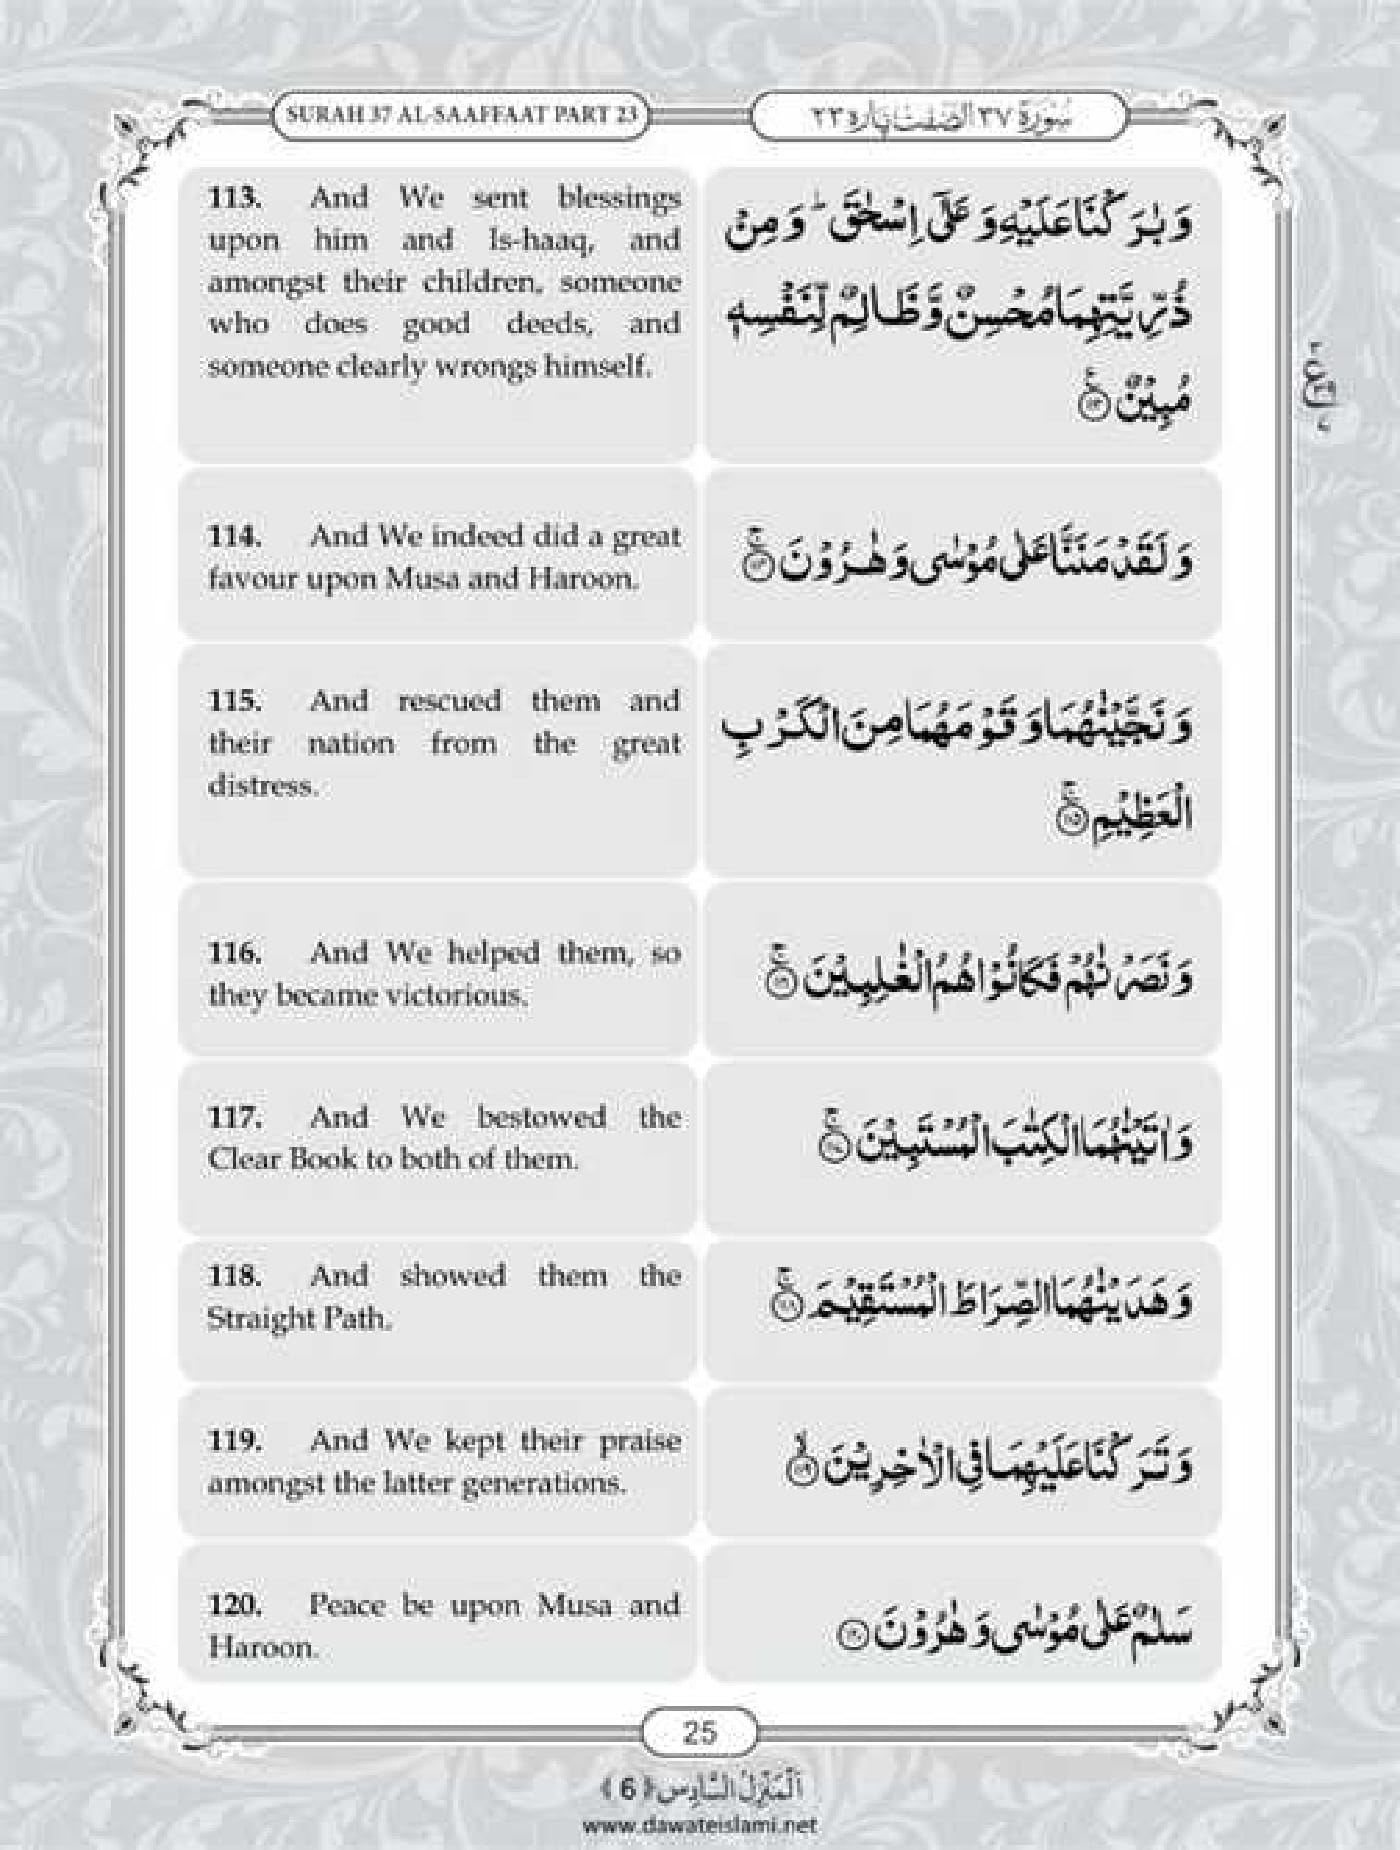 SURAH 37 AL-SAAFFAAT PART 23
سُوْرَة ٣٧ الصّٰٓفّٰت پاره ٢٣
113. And We sent blessings
upon him and Is-haaq, and
amongst their children, someone
who does good deeds, and
someone clearly wrongs himself.
وَ بٰرَكْنَا عَلَیْهِ وَ عَلٰۤى اِسْحٰقَؕ وَ مِنْ
ذُرِّیَّتِهِمَا مُحْسِنٌ وَّ ظَالِمٌ لِّنَفْسِهٖ
مُبِیْنٌ۠ ﴿۱۱۳﴾
114. And We indeed did a great
favour upon Musa and Haroon.
وَ لَقَدْ مَنَنَّا عَلٰى مُوْسٰى وَ هٰرُوْنَۚ ﴿۱۱۴﴾
115. And rescued them and
their nation from the great
distress.
وَ نَجَّیْنٰهُمَا وَ قَوْمَهُمَا مِنَ الْكَرْبِ
الْعَظِیْمِۚ ﴿۱۱۵﴾
116. And We helped them, so
they became victorious.
وَ نَصَرْنٰهُمْ فَكَانُوْا هُمُ الْغٰلِبِیْنَۚ ﴿۱۱۶﴾
117. And We bestowed the
Clear Book to both of them.
وَ اٰتَیْنٰهُمَا الْكِتٰبَ الْمُسْتَبِیْنَۚ ﴿۱۱۷﴾
118. And showed them the
Straight Path.
وَ هَدَیْنٰهُمَا الصِّرَاطَ الْمُسْتَقِیْمَۚ ﴿۱۱۸﴾
119. And We kept their praise
amongst the latter generations.
وَ تَرَكْنَا عَلَیْهِمَا فِی الْاٰخِرِیْنَۙ ﴿۱۱۹﴾
120. Peace be upon Musa and
Haroon.
سَلٰمٌ عَلٰى مُوْسٰى وَ هٰرُوْنَ ﴿۱۲۰﴾
25
اَلْمَنْزِلُ السَّادِس ﴿6﴾
www.dawateislami.net